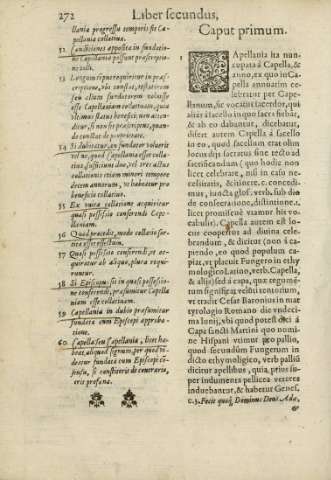 272 Liber secundus,
llania progressu temporis fit Ca-
pellania collatiua.
52 Conditiones apposita in fundatio-
ne Capellania possunt præscriptio-
ne tolli.
53 Longum tempus requiritur in præs-
criptione, vt
sem aliam fundatorem voluisse
esse Capellaniam collatiuam, quia
vltimus status beneficij non atten-
ditur, si non sit præscriptus, quan-
do constat de proprietate.
54 Si dubitatur, an fundator voluerit
vel ne, quod Capellania esset colla-
tiua, sufficiunt duæ, vel tres actus
collationis etiam minori tempore
decem annorum, vt habeatur pro
beneficio collatiuo.
55 Ex vnica collatione acquiritur
quasi possessio conferendi Cape-
llaniam.
56 Quod procedit, modo collatio for-
tita esset effectum.
57 Quasi possessio conferendi, vt ac-
quiratur ab aliquo, plura requi-
runtur.
58 Si Episcopus sit in quasi possessio-
ne conferendi, præsumitur Capella
niam esse collatiuam.
59 Capellania in dubio præsumitur
fundata cum Episcopi approba-
tione.
60 Capella seu Capellania, licet ha-
beat, aliquod signum, per quod vi-
deatur fundata cum Episcopi as-
sensu, si constiterit de contrario,
erit profana.
Caput primum.
1 CApellania ita nun-
cupata à Capella, &
anno, ex quo in Ca-
pella annuatim ce-
lebratur per Cape-
llanum, sic vocatus sacerdos, qui
alias à sacello in quo sacra fiebat,
& ab eo dabantur, dicebatur,
differt autem Capella à sacello
in eo, quod sacellum erat olim
locus dijs sacratus sine tecto ad
sacrificandum (quo hodie non
licet celebrare, nisi in casu ne-
cessitatis, &
nimus, iuncta glos. verb. sub dio
de consecratione, distinctione 1.
licet promiscuè vtamur his vo-
cabulis). Capella autem est lo-
cus coopertus ad diuina cele-
brandum, & dicitur (non à ca-
piendo, eo quod populum ca-
piat, vt placuit Fungero in ethy
mologico Latino, verb. Capella,
& alijs) sed à capa, quæ tegumẽ-
tum significat vestis tentorium,
vt tradit Cesar Baronius in mar
tyrologio Romano die vndeci-
ma Iunij, vbi quod potest dici à
Capa sancti Martini quo nomi-
ne Hispani vtimur pro pallio,
quod secundùm Fungerum in
dicto ethymologico, verb pallio
dicitur apellibus, quia prius su-
per indumenta pellicea veteres
induebantur, & habetur Genes,
c. 3. Fecit quoq; Dominus Deus Adæ,
&